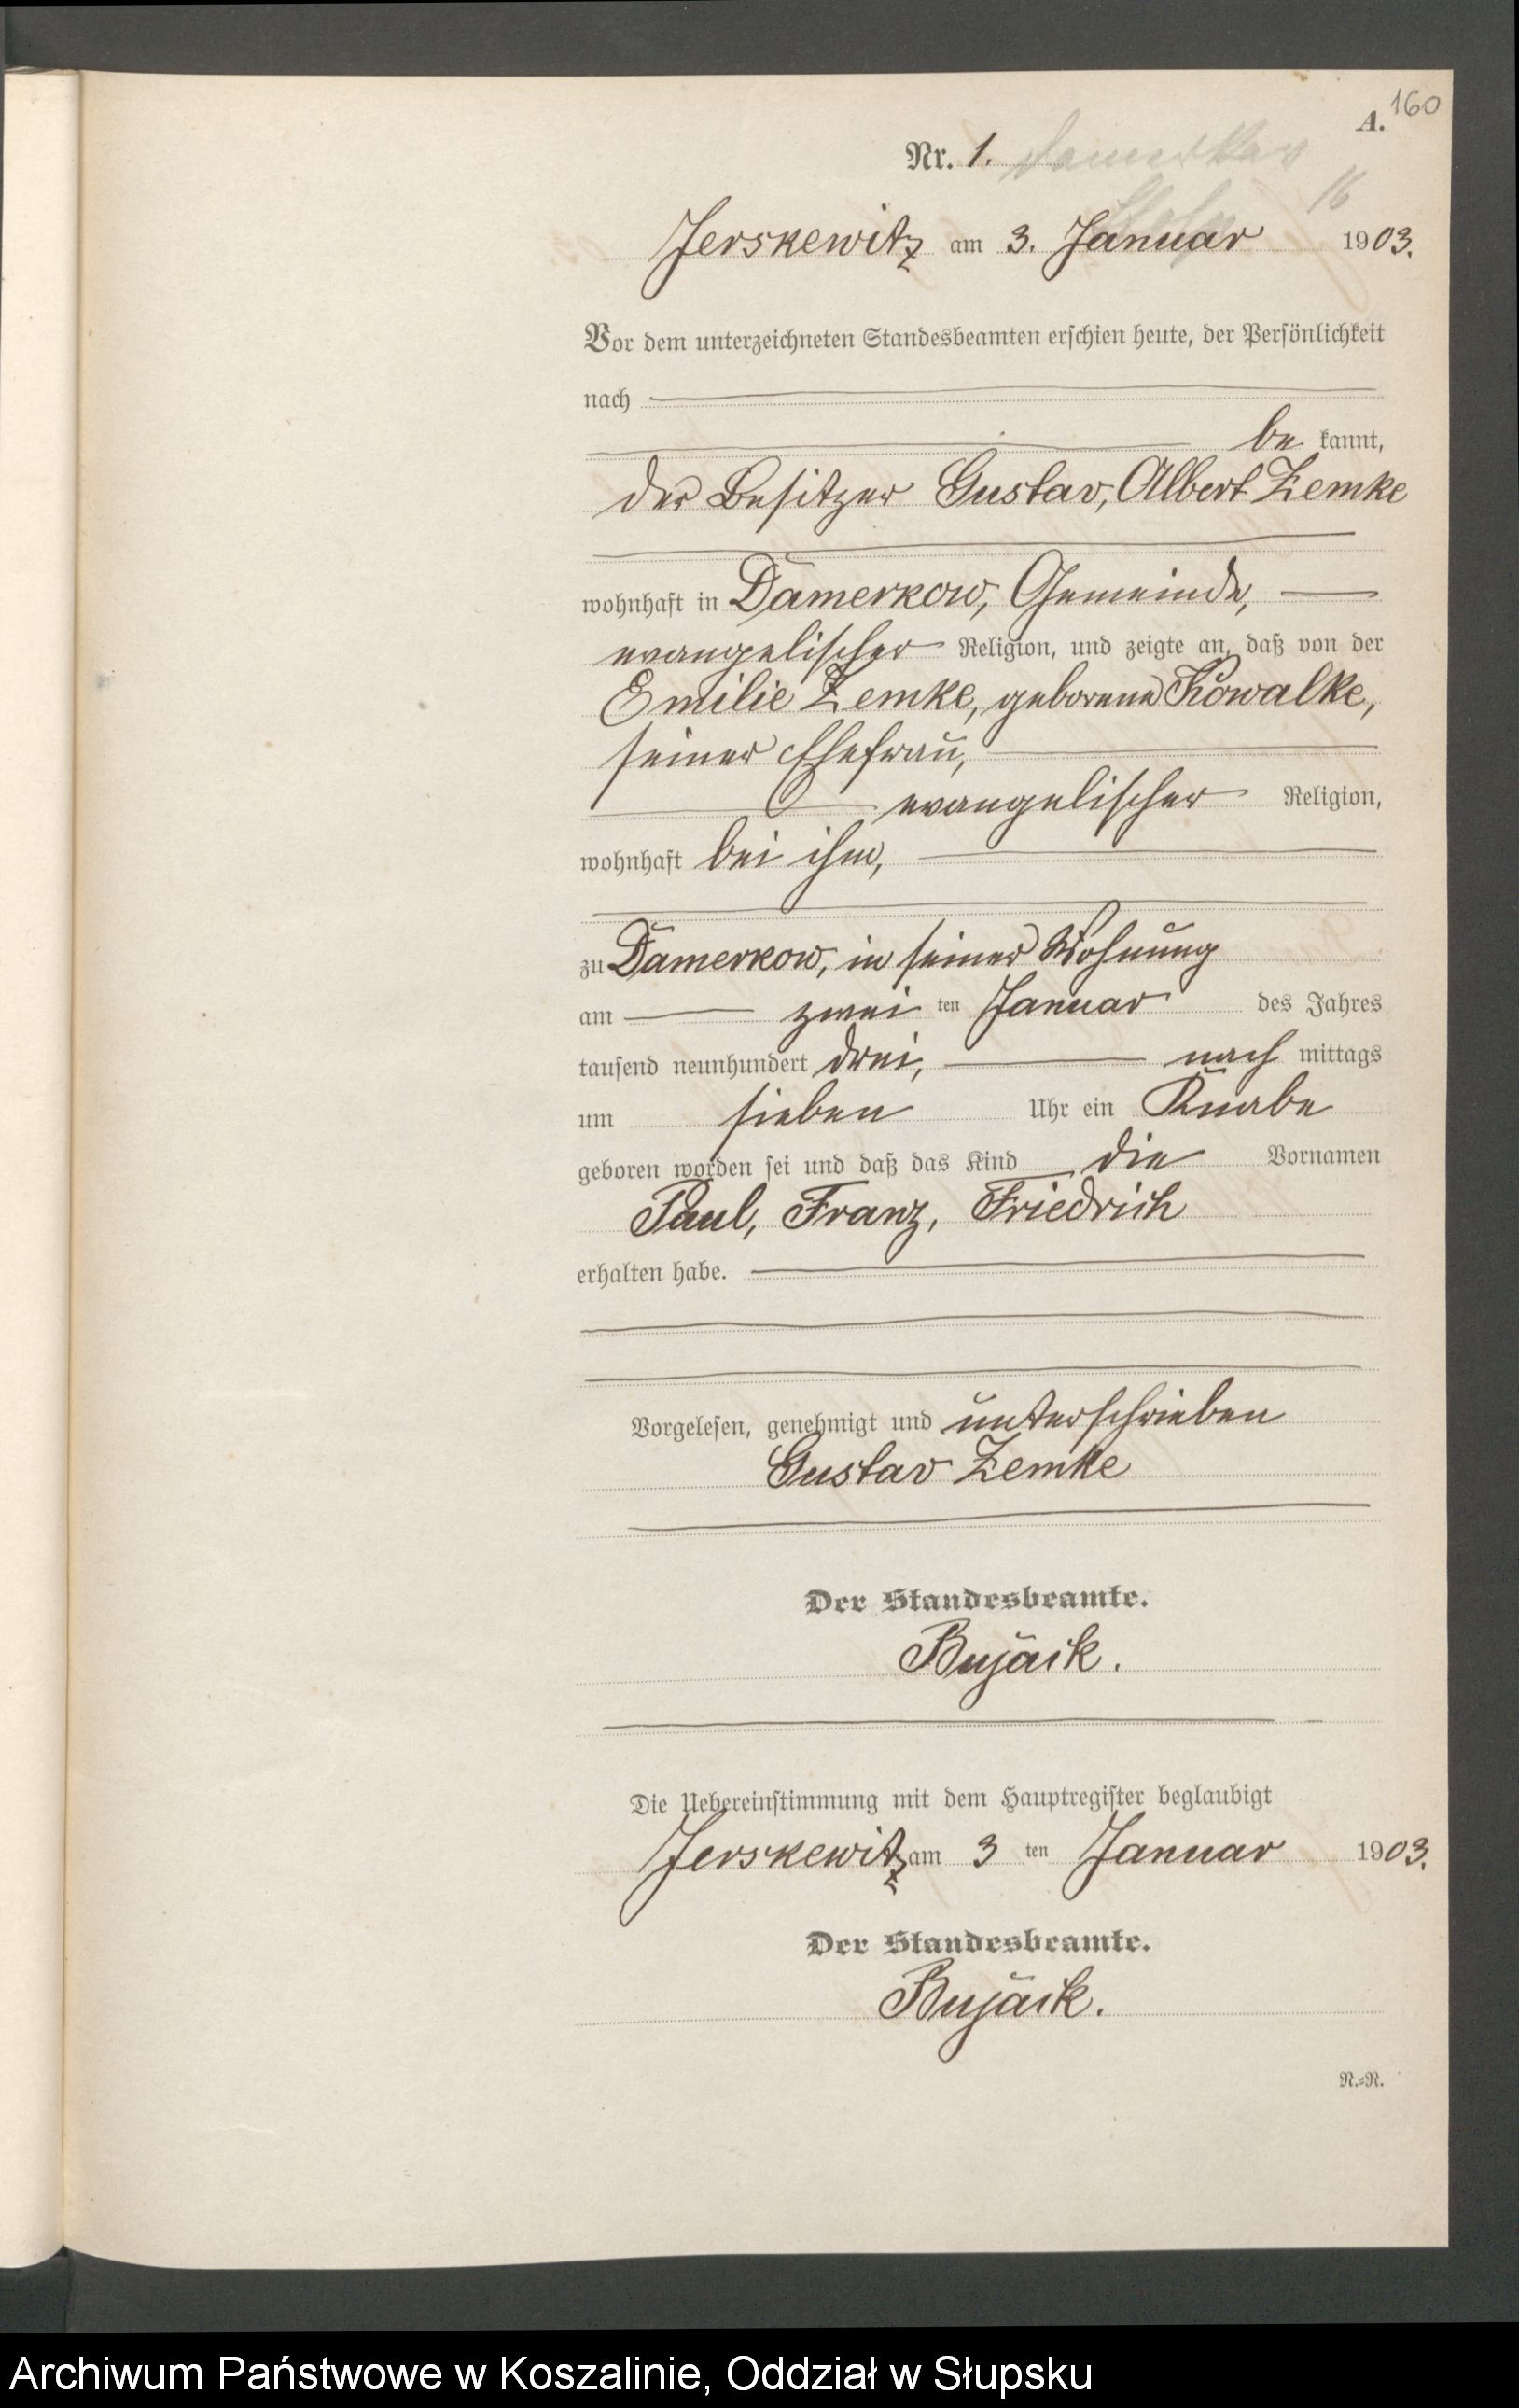 160
A.
Nr. 1.
16
Jerskewitz am 3. Januar 1903.
Vor dem unterzeichneten Standesbeamten erschien heute, der Persönlichkeit
nach
be kannt,
der Besitzer Gustav, Albert Zemke
wohnhaft in Damerkow, Gemeinde,
evangelischer Religion, und zeigte an, daß von der
Emilie Zemke, geborene Kowalke,
seiner Ehefrau,
evangelischer Religion,
wohnhaft bei ihm,
zu Damerkow, in seiner Wohnung
am zwei ten Januar des Jahres
tausend neunhundert drei, nach mittags
um sieben Uhr ein Knabe
geboren worden sei und daß das Kind die Vornamen
Paul, Franz, Friedrich
erhalten habe.
Vorgelesen, genehmigt und unterschrieben
Gustav Zemke
Der Standesbeamte.
Bujack.
Die Uebereinstimmung mit dem Hauptregister beglaubigt
Jerskewitz am 3 ten Januar 1903.
Der Standesbeamte.
Bujack.
N.=R.
Archiwum Państwowe w Koszalinie, Oddział w Słupsku